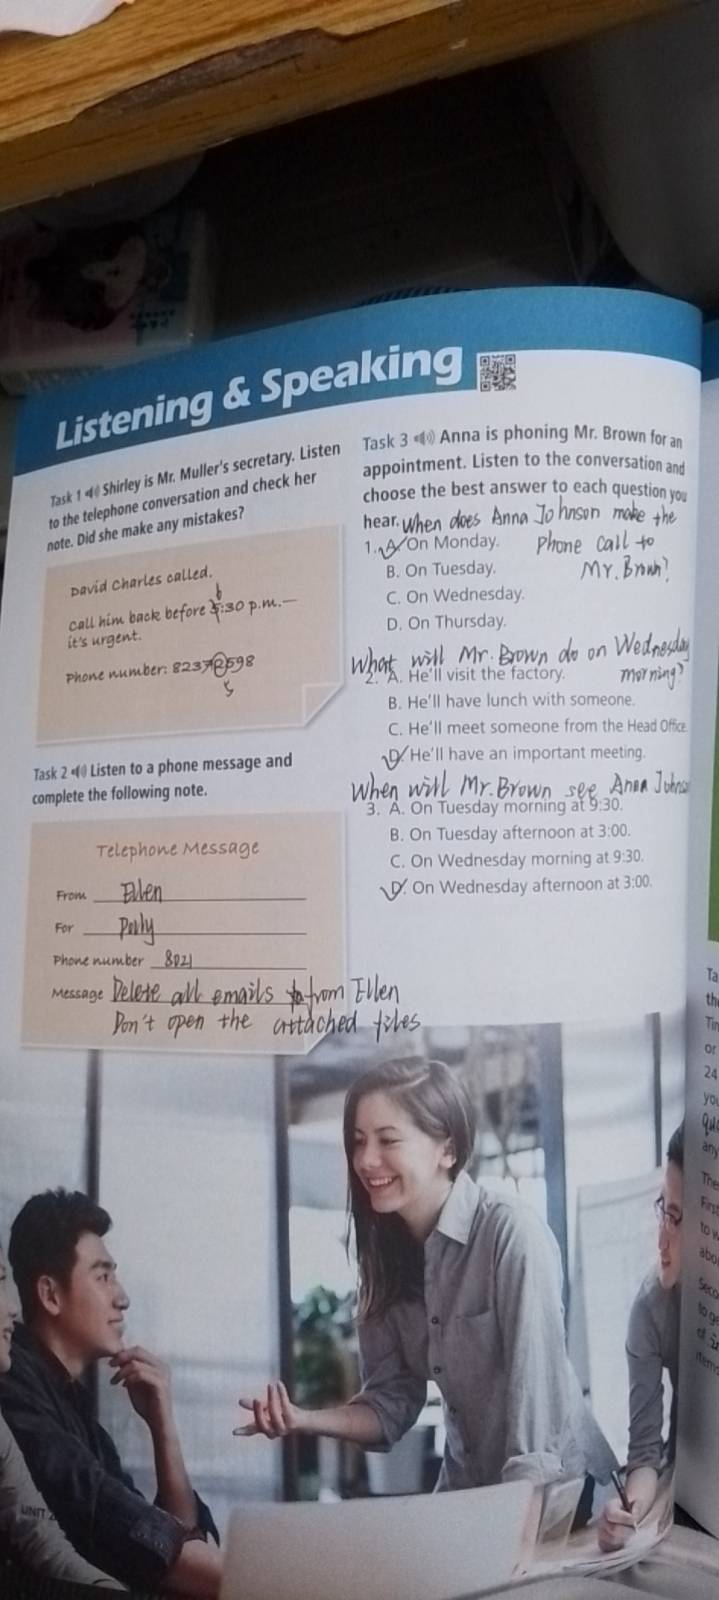 Listening & Speaking
Task 1 Shirley is Mr. Muller's secretary. Listen
to the telephone conversation and check her
note. Did she make any mistakes?
David Charles called.
6
call him back before 5:30 p.m.—
it's urgent.
Phone number: 82372598
5
Task 2 Listen to a phone message and
complete the following note.
Telephone Message
From Ellen
For Polly
Phone number 8021
Message Delete all emails from Ellen
Don't open the attached files
Task 3 Anna is phoning Mr. Brown for an
appointment. Listen to the conversation and
choose the best answer to each question you
hear. When does Anna Johnson make the
phone call to
Mr. Brown?
1. A. On Monday.
B. On Tuesday.
C. On Wednesday.
D. On Thursday.
What will Mr. Brown do on Wednesday
morning?
2. A. He'll visit the factory.
B. He'll have lunch with someone.
C. He'll meet someone from the Head Office.
D. He'll have an important meeting.
When will Mr. Brown see Anna Johnso
3. A. On Tuesday morning at 9:30.
B. On Tuesday afternoon at 3:00.
C. On Wednesday morning at 9:30.
D. On Wednesday afternoon at 3:00.
UNIT 2
Ta
th
Tin
or
24
yo
any
The
Firs
to w
abo
Seco
to ge
of
items